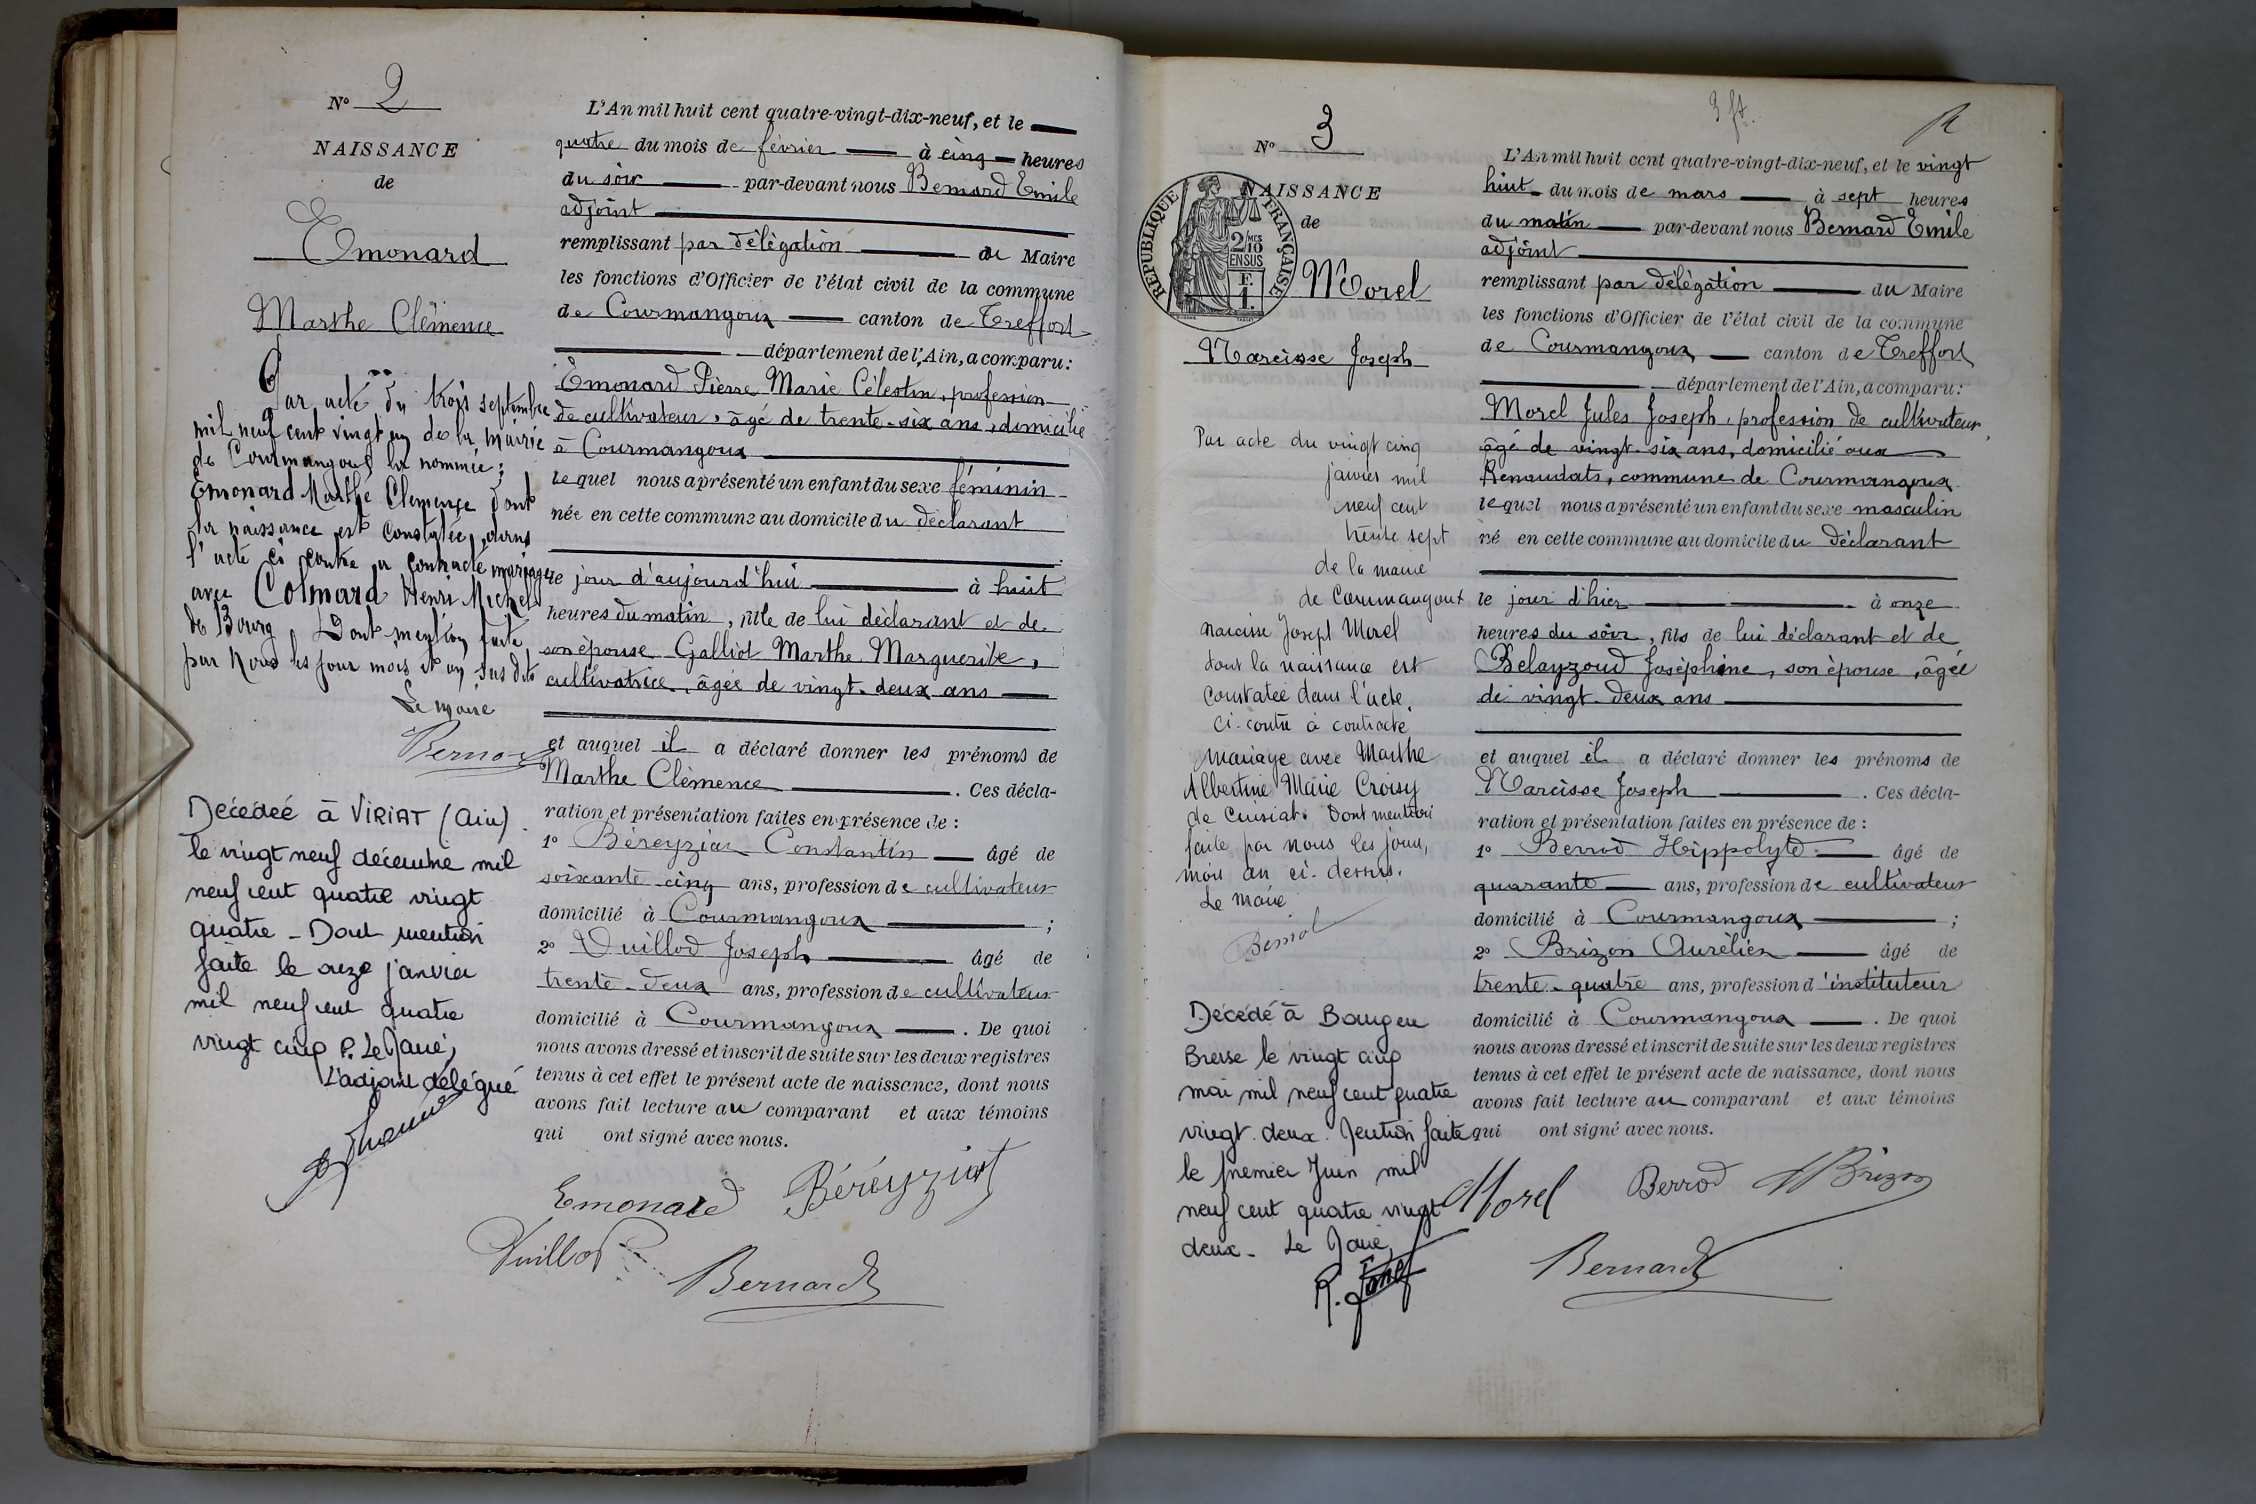 N° 2
NAISSANCE
de
Emonard
Marthe Clémence
Par acte du trois septembre
mil neuf cent vingt un de la mairie
de Courmangoux la nommée :
Emonard Marthe Clémence dont
la naissance est constatée dans
l'acte ci contre a contracté mariage
avec Colmard Henri Michel
de Bourg. Dont mention faite,
par nous les jour mois et an sus dits
Le maire
Décédée à VIRIAT (Ain)
le vingt neuf décembre mil
neuf cent quatre vingt
quatre - Dont mention
faite le onze janvier
mil neuf cent quatre
vingt cinq P. Le Maire,
L'adjoint délégué
L'An mil huit cent quatre-vingt-dix-neuf, et le
quatre du mois de février à cinq heures
du soir par-devant nous Bernard Emile
adjoint
remplissant par délégation du Maire
les fonctions d'Officier de l'état civil de la commune
de Courmangoux canton de Treffort
département de l'Ain, a comparu :
Emonard Pierre Marie Célestin, profession
de cultivateur, âgé de trente-six ans, domicilié
à Courmangoux
lequel nous a présenté un enfant du sexe féminin
née en cette commune au domicile du déclarant
le jour d'aujourd'hui à huit
heures du matin, fille de lui déclarant et de
son épouse Galliot Marthe Marguerite,
cultivatrice, âgée de vingt-deux ans
et auquel il a déclaré donner les prénoms de
Marthe Clémence . Ces décla-
ration et présentation faites en présence de :
1° Béreyziat Constantin âgé de
soixante-cinq ans, profession de cultivateur
domicilié à Courmangoux ;
2° Vuillod Joseph âgé de
trente-deux ans, profession de cultivateur
domicilié à Courmangoux . De quoi
nous avons dressé et inscrit de suite sur les deux registres
tenus à cet effet le présent acte de naissance, dont nous
avons fait lecture au comparant et aux témoins
qui ont signé avec nous.
Emonard Béréyziat
Vuillod
Bernard
3 ft
N° 3
NAISSANCE
de
RÉPUBLIQUE FRANÇAISE
2/10 MES
EN SUS
F.
1.
Morel
Narcisse Joseph
Par acte du vingt cinq
janvier mil
neuf cent
trente sept
de la mairie
de Courmangoux
Narcisse Joseph Morel
dont la naissance est
constatée dans l'acte
ci-contre a contracté
mariage avec Marthe
Albertine Marie Croisy
de Cuisiat. Dont mention
faite par nous les jour,
mois an ci-dessus.
Le maire
Décédé à Baugeu
Bresse le vingt cinq
mai mil neuf cent quatre
vingt deux. Mention faite
le premier Juin mil
neuf cent quatre vingt
deux - Le Maire,
L'An mil huit cent quatre-vingt-dix-neuf, et le vingt
huit du mois de mars à sept heures
du matin par-devant nous Bernard Emile
adjoint
remplissant par délégation du Maire
les fonctions d'Officier de l'état civil de la commune
de Courmangoux canton de Treffort
département de l'Ain, a comparu :
Morel Jules Joseph, profession de cultivateur,
âgé de vingt-six ans, domicilié aux
Renaudats, commune de Courmangoux
lequel nous a présenté un enfant du sexe masculin
né en cette commune au domicile du déclarant
le jour d'hier à onze
heures du soir, fils de lui déclarant et de
Belayzoud Joséphine, son épouse, âgée
de vingt-deux ans
et auquel il a déclaré donner les prénoms de
Narcisse Joseph . Ces décla-
ration et présentation faites en présence de :
1° Berrod Hippolyte âgé de
quarante ans, profession de cultivateur
domicilié à Courmangoux ;
2° Brizon Aurélien âgé de
trente-quatre ans, profession d'instituteur
domicilié à Courmangoux . De quoi
nous avons dressé et inscrit de suite sur les deux registres
tenus à cet effet le présent acte de naissance, dont nous
avons fait lecture au comparant et aux témoins
qui ont signé avec nous.
Morel Berrod Brizon
Bernard